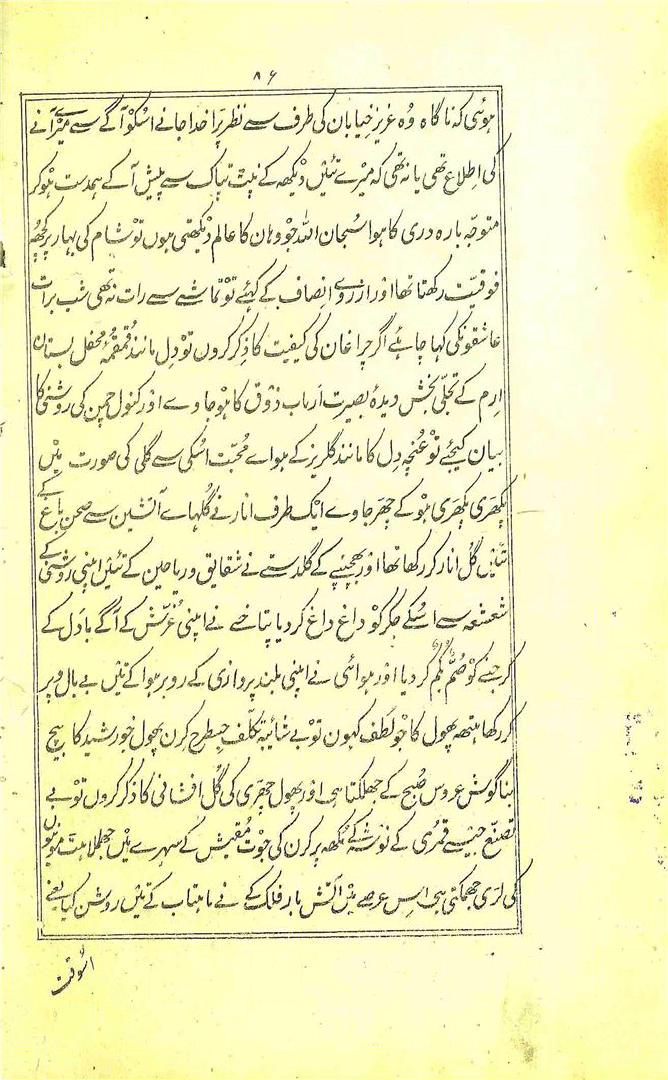 ۸۶
ہوئی کہ ناگاہ وُہ عزیز خیابان کی طرف سے نظر پرَا خدا جانے اسکو آگے سے میرے آنے
کی اِطلاع تھی یا نہ تھی کہ میرے تئیں دیکھہ کے نپٹ تپاک سے پیش آ کے ہمدست ہو کر
متوجّہ بارہ دری کا ہوا سُبحان اللہ جو وہان کا عالم دیکھتی ہوں تو شام کی بہار پر کچھہ
فوقیت رکھتا تھا اور از روے اِنصاف کے کہئے تو تماشے سے رات نہ تھی شب برات
عاشقونکی کہا چاہئے اگر چراغان کی کیفیت کا ذِکر کروں تو دِل مانند قمقمۂ محفل بستان
اِرم کے تجلّی بخش دیدۂ بصیرت اَربابِ ذوق کا ہو جاوے اور کنول چمن کی روشنی کا
بیان کیجئے تو غُنچہ دِل کا مانند گلریز کے ہواے محبّت اُسکی سے گلی کی صورت میں
پکھری پکھری ہو کے جھر جاوے ایک طرف انار نے گلہاے آتشین سے صحن باغ کے
تئیں گُل انار کر رکھا تھا اور بھچنپے کے گلدستے نے شقایق و ریاحین کے تئیں اپنی روشنی کے
شعشعہ سے اسکے جگر کو داغ داغ کر دیا پٹاخے نے اپنی غُرّش کے آگے بادل کے
گرجنے کو صُمٌّ بُکمٌ کر دیا اور ہوائی نے اپنی بلند پروازی کے روبرو ہوا کے تئیں بے بال و پر
کر رکھا ہتھہ پھول کا جو لُطف کہون تو بے شائبۂ تکلّف جسطرح کرن پھول خورشید کا بیچ
بناگوش عروس صُبح کے جھلکتا ہی اور پھول جھری کی گُل افشانی کا ذکر کروں تو بے
تصنّع جیسے قمری کے نوشہ کے مُکھہ پر کرن کی جوت مُقیش کے سہرے میں جھملاہت موتیوں
کی لری جھمکتی ہی اِس عرصے میں آتش بار فلک کے نے ماہتاب کے تئیں روشن کیا یعنے
اسوقت